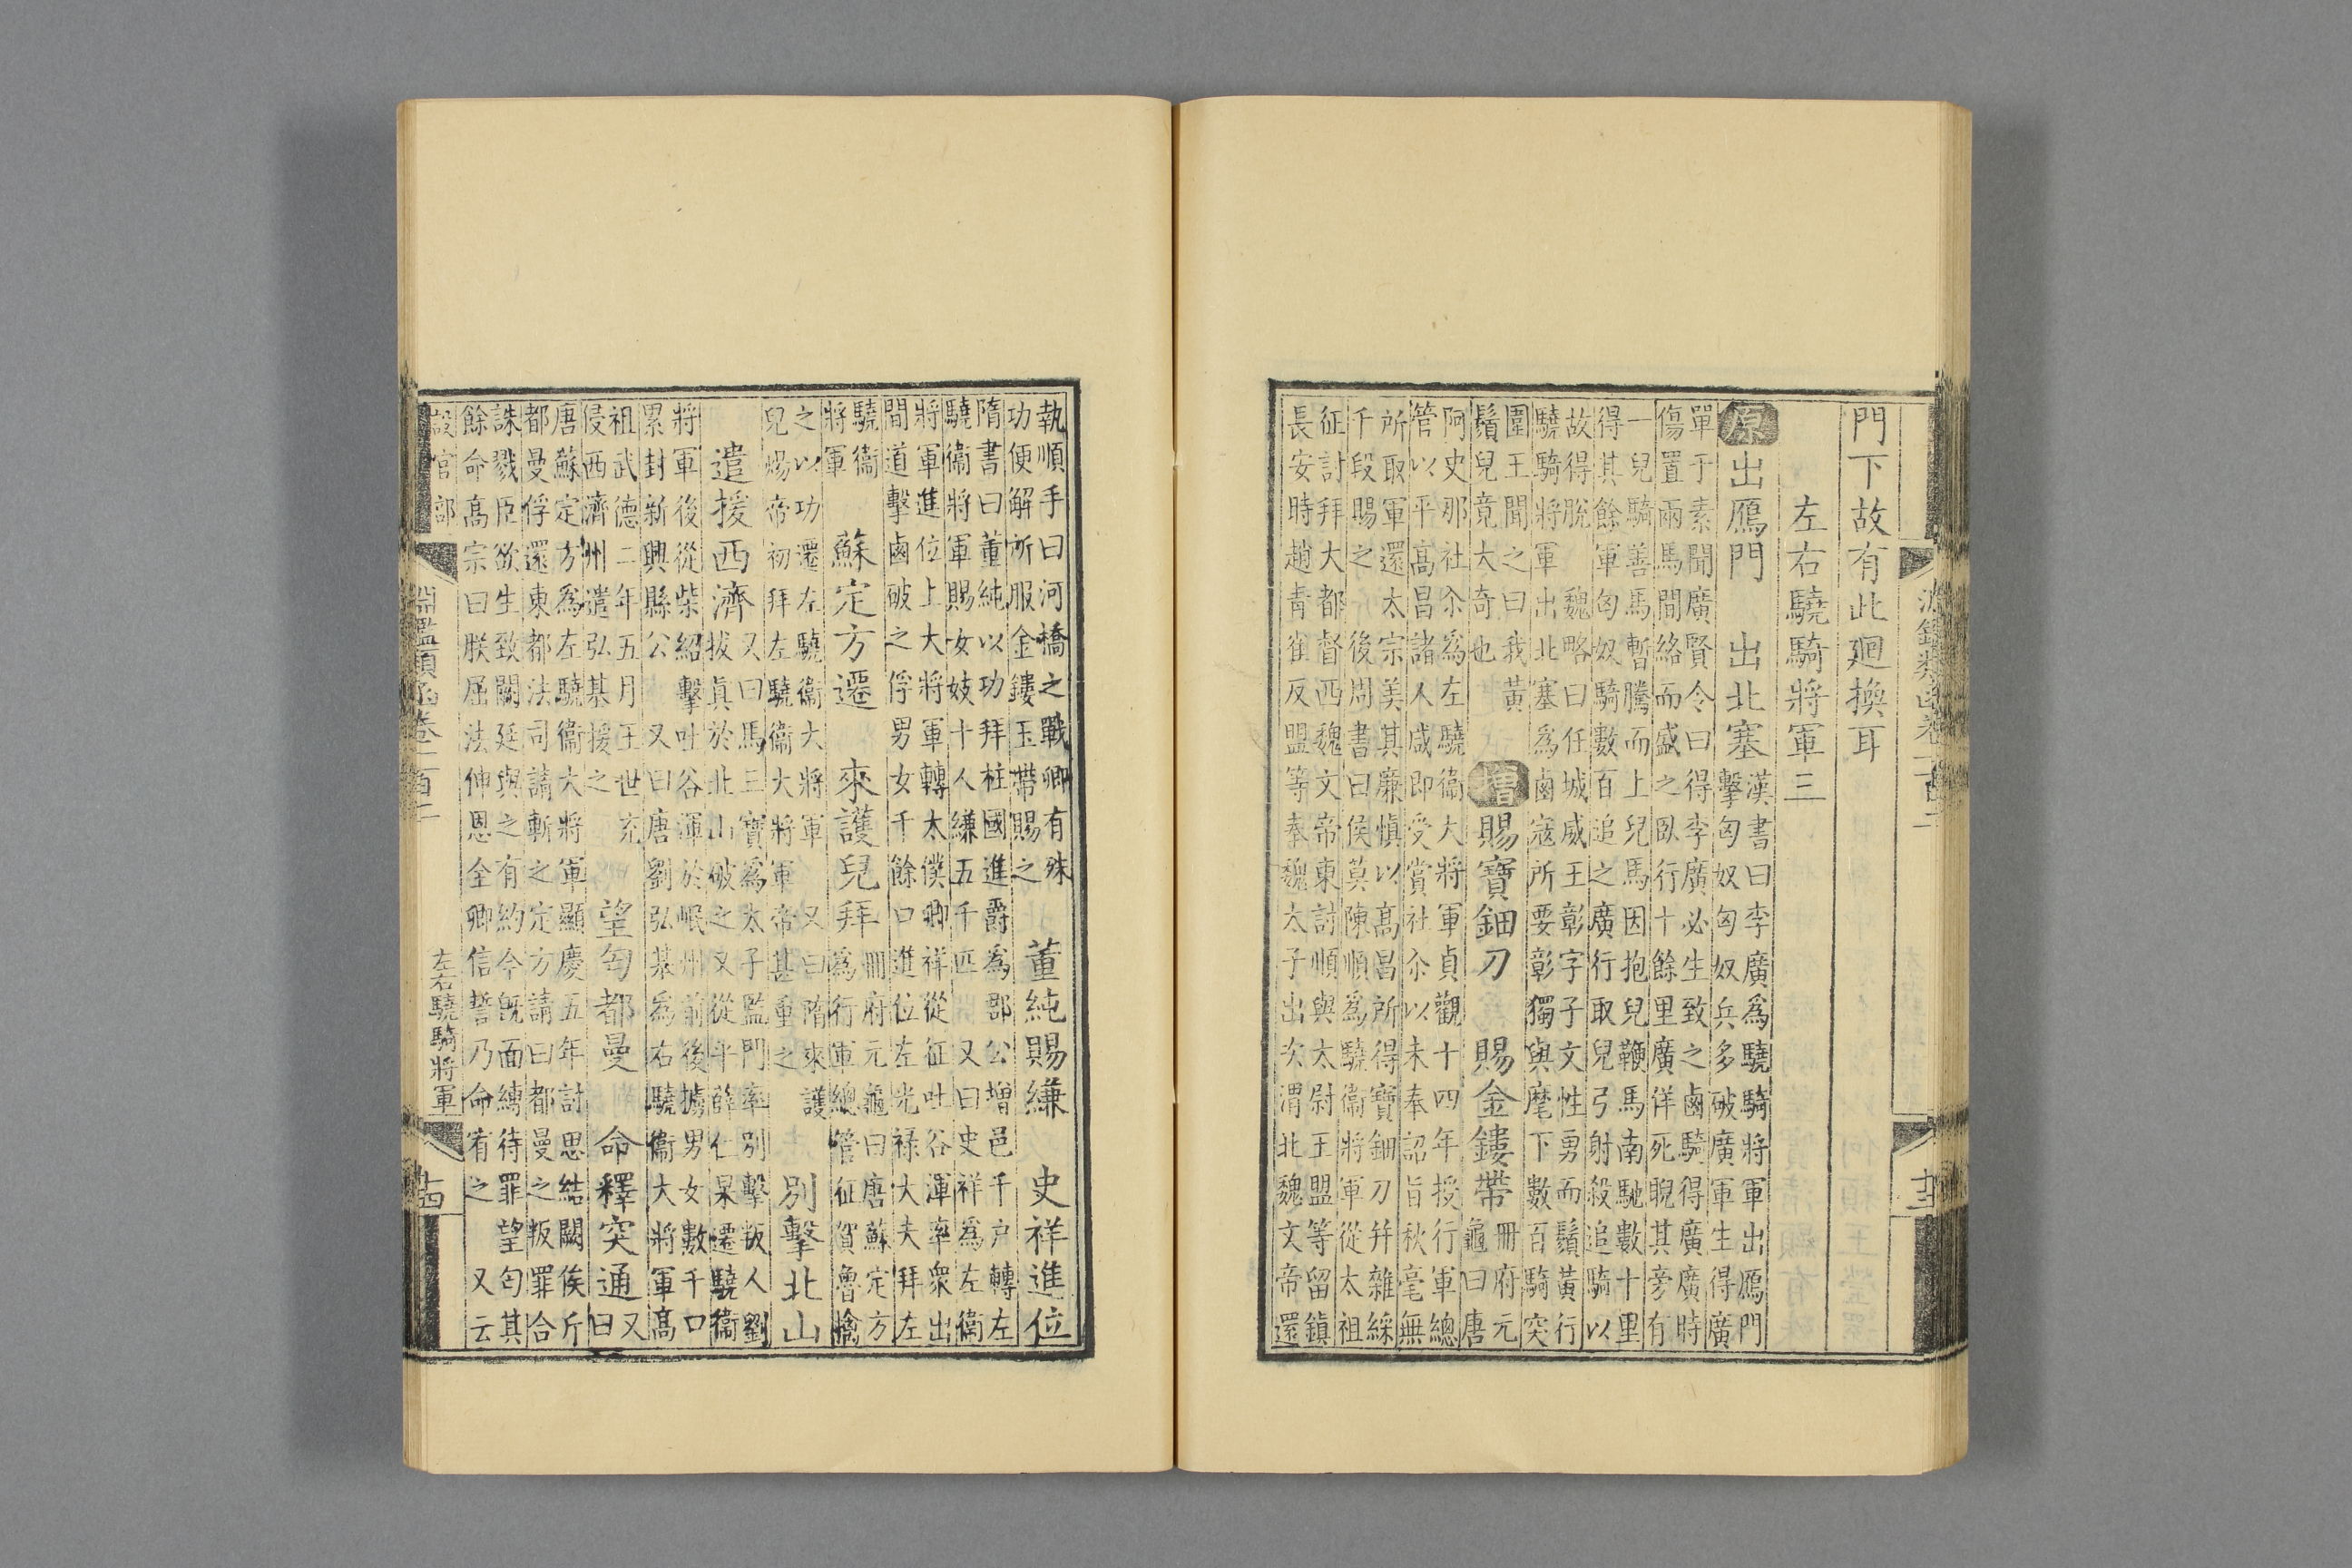 門下故有此廻換耳
左右驍騎將軍三
原出鴈門　出北塞
漢書曰李廣爲驍騎將軍出鴈門
擊匈奴匈奴兵多破廣軍生得廣
單于素聞廣賢令曰得李廣必生致之鹵騎得廣廣時
傷置兩馬間絡而盛之臥行十餘里廣佯死睨其旁有
一兒騎善馬暫騰而上兒馬因抱兒鞭馬南馳數十里
得其餘軍匈奴騎數百追之廣行取兒弓射殺追騎以
故得脫　魏略曰任城威王彰字子文性勇而鬚黃行
驍騎將軍出北塞爲鹵寇所要彰獨與麾下數百騎突
圍王聞之曰我黃
鬚兒竟大奇也
增賜寶鈿刀　賜金鏤帶
冊府元
龜曰唐
阿史那社尒爲左驍衞大將軍貞觀十四年授行軍總
管以平高昌諸人咸即受賞社尒以未奉詔旨秋毫無
所取軍還太宗美其廉慎以高昌所得寶鈿刀并雜綵
千段賜之　後周書曰侯莫陳順爲驍衞將軍從太祖
征討拜大都督西魏文帝東討順與太尉王盟等留鎮
長安時趙青雀反盟等奉魏太子出次渭北魏文帝還
執順手曰河橋之戰卿有殊
功便解所服金鏤玉帶賜之
董純賜縑　史祥進位
隋書曰董純以功拜柱國進爵爲郡公增邑千戶轉左
驍衞將軍賜女妓十人縑五千匹　又曰史祥爲左衞
將軍進位上大將軍轉太僕卿祥從征吐谷渾率衆出
間道擊鹵破之俘男女千餘口進位左光祿大夫拜左
驍衞
將軍
蘇定方遷　來護兒拜
冊府元龜曰唐蘇定方
爲行軍總管征賀魯擒
之以功遷左驍衞大將軍　又曰隋來護
兒煬帝初拜左驍衞大將軍帝甚重之
別擊北山
遣援西濟
又曰馬三寶爲太子監門率別擊叛人劉
拔眞於北山破之又從平薛仁杲遷驍衞
將軍後從柴紹擊吐谷渾於岷州前後擄男女數千口
累封新興縣公　又曰唐劉弘基爲右驍衞大將軍高
祖武德二年五月王世充
侵西濟州遣弘基援之
望匄都曼　命釋突通
又
曰
唐蘇定方爲左驍衞大將軍顯慶五年討思結闕俟斤
都曼俘還東都法司請斬之定方請曰都曼之叛罪合
誅戮臣欲生致闕廷與之有約今旣面縛待罪望匄其
餘命高宗曰朕屈法伸恩全卿信誓乃命宥之　又云
設官部
淵鑑類函卷一百二
左右驍騎將軍
十四